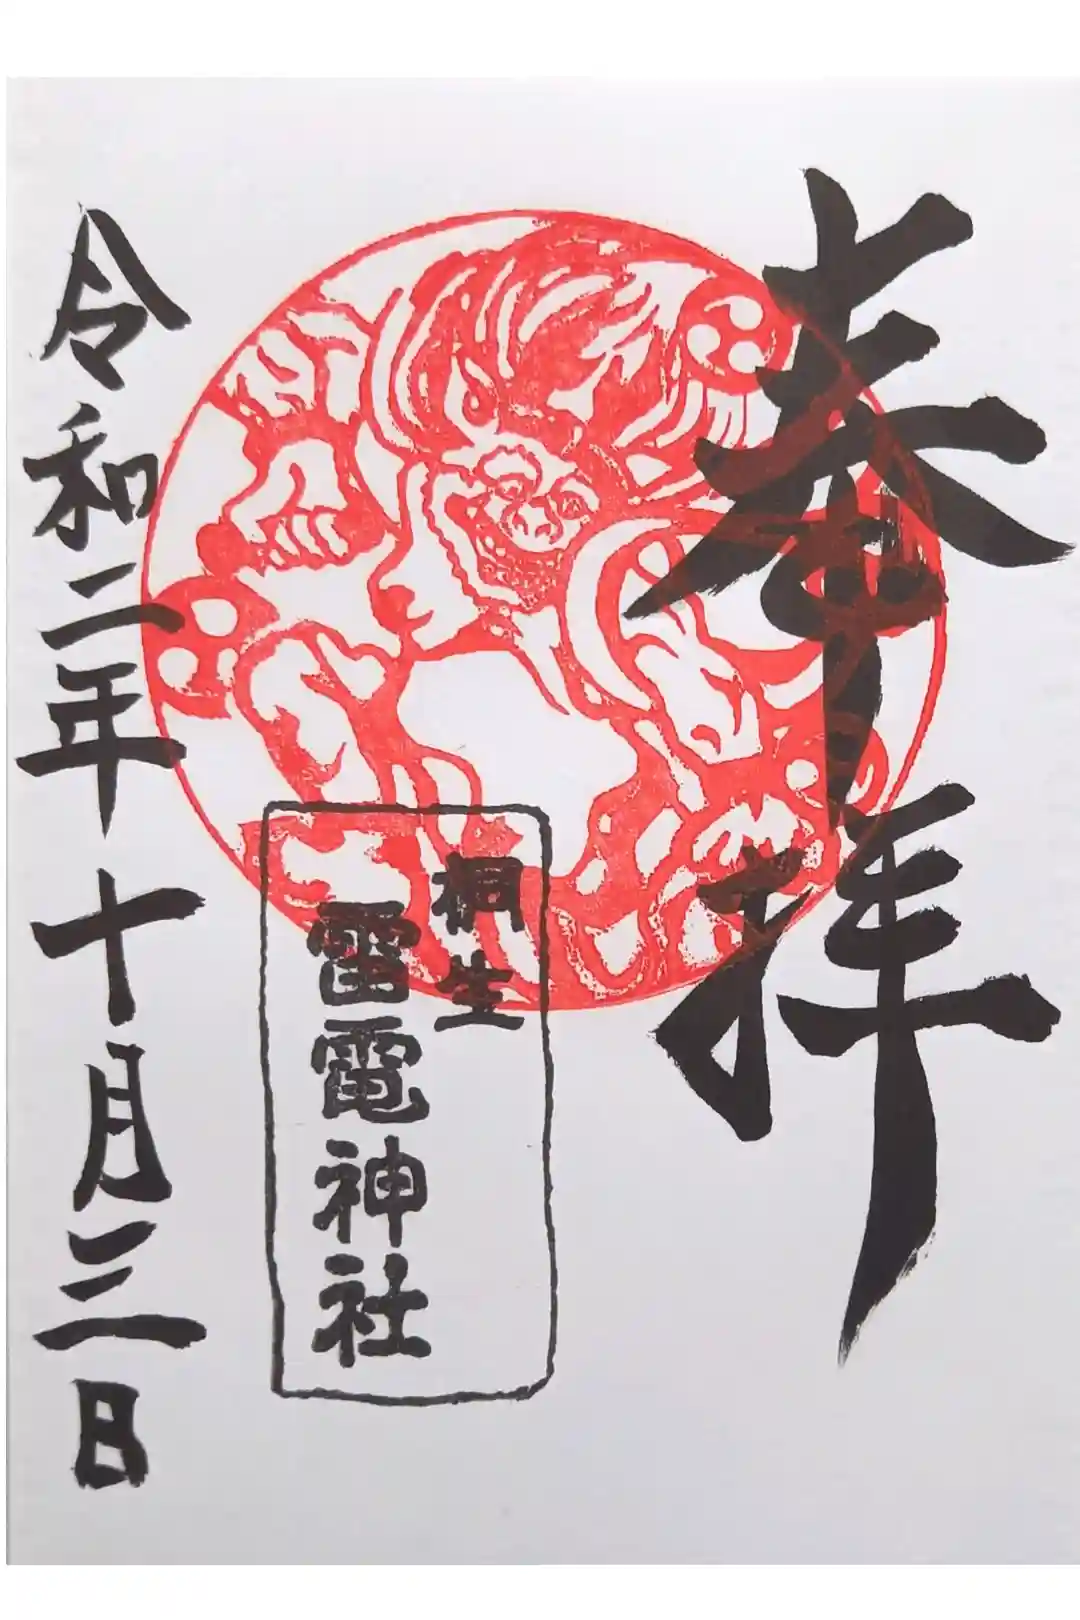 奉拝
桐生
雷電神社
令和二年十月三日